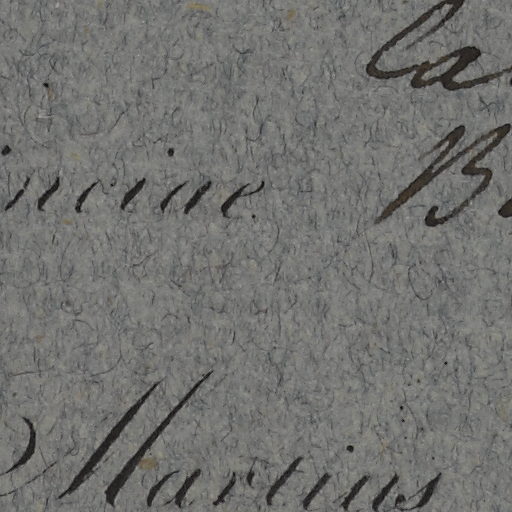 la
inciae
B
Martius